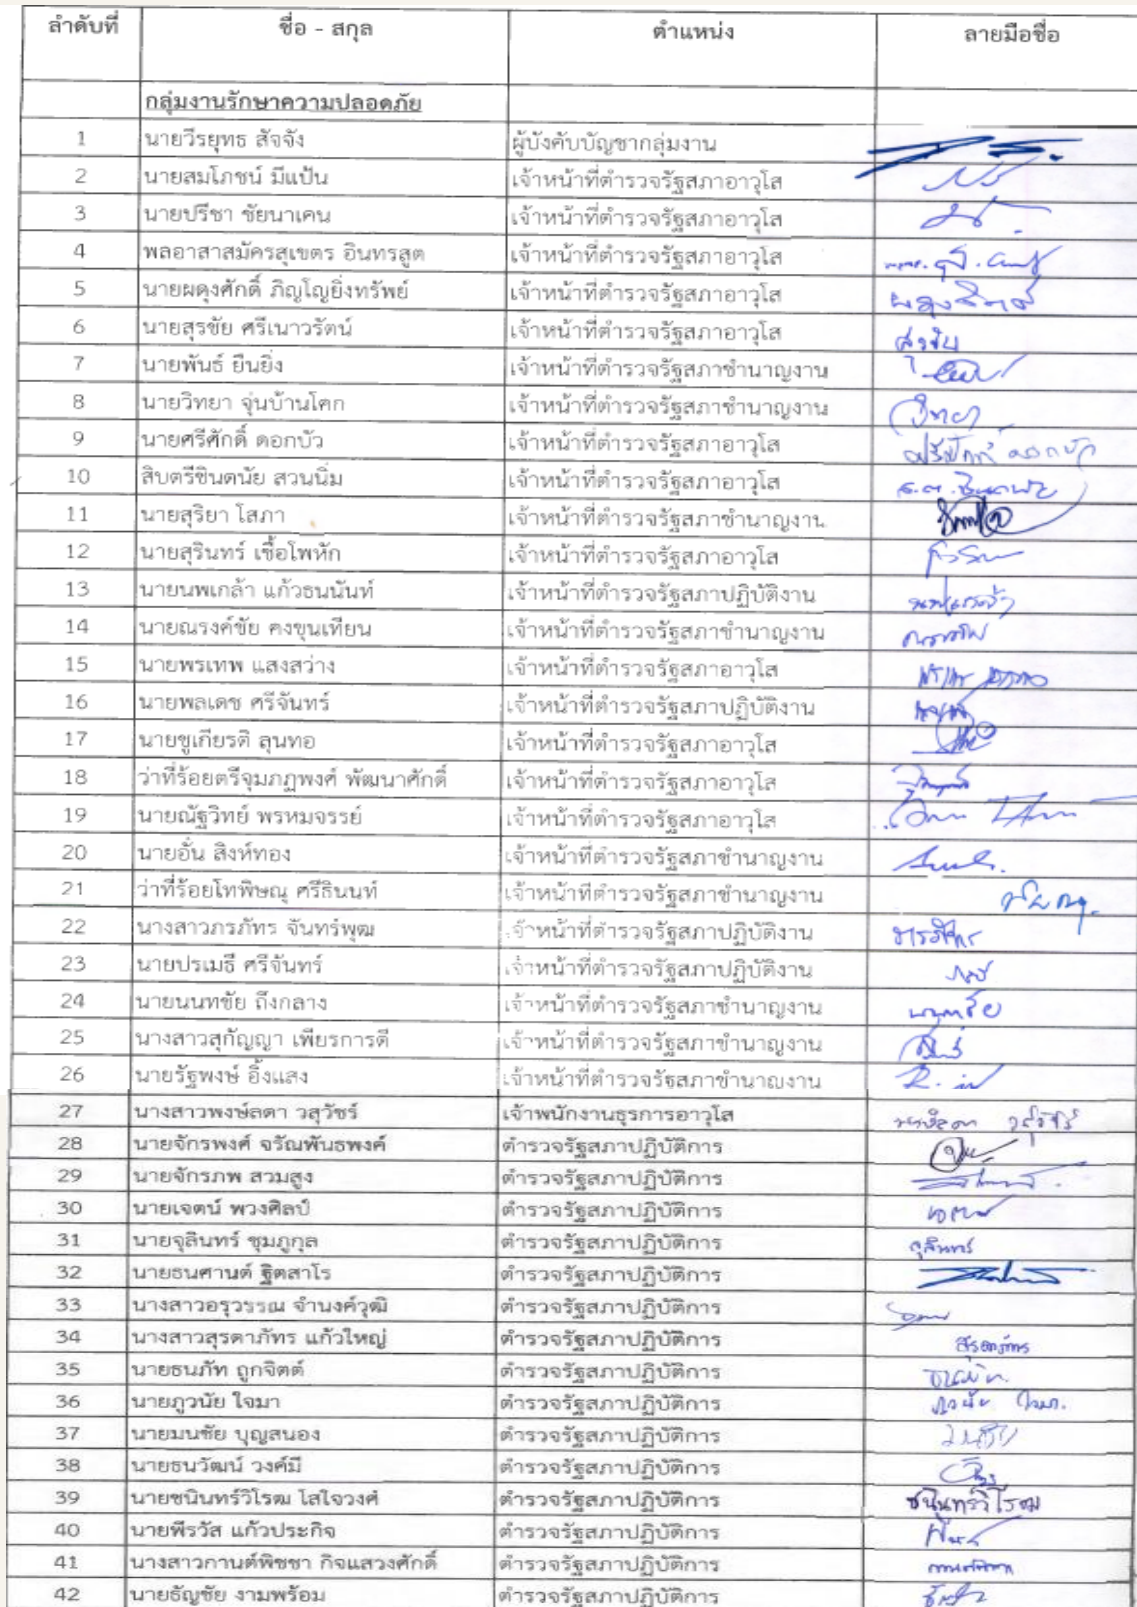 ลำดับที่ ชื่อ - สกุล ตำแหน่ง ลายมือชื่อ
กลุ่มงานรักษาความปลอดภัย
1 นายวีรยุทธ สัจจัง ผู้บังคับบัญชากลุ่มงาน
2 นายสมโภชน์ มีแป้น เจ้าหน้าที่ตำรวจรัฐสภาอาวุโส
3 นายปรีชา ชัยนาเคน เจ้าหน้าที่ตำรวจรัฐสภาอาวุโส
4 พลอาสาสมัครสุเขตร อินทรสูต เจ้าหน้าที่ตำรวจรัฐสภาอาวุโส
5 นายผดุงศักดิ์ ภิญโญยิ่งทรัพย์ เจ้าหน้าที่ตำรวจรัฐสภาอาวุโส
6 นายสุรชัย ศรีเนาวรัตน์ เจ้าหน้าที่ตำรวจรัฐสภาอาวุโส สุรชัย
7 นายพันธ์ ยืนยิ่ง เจ้าหน้าที่ตำรวจรัฐสภาชำนาญงาน
8 นายวิทยา จุ่นบ้านโคก เจ้าหน้าที่ตำรวจรัฐสภาชำนาญงาน วิทยา
9 นายศรีศักดิ์ ดอกบัว เจ้าหน้าที่ตำรวจรัฐสภาอาวุโส ศรีศักดิ์ ดอกบัว
10 สิบตรีชินดนัย สวนนิ่ม เจ้าหน้าที่ตำรวจรัฐสภาอาวุโส
11 นายสุริยา โสภา เจ้าหน้าที่ตำรวจรัฐสภาชำนาญงาน
12 นายสุรินทร์ เชื้อโพหัก เจ้าหน้าที่ตำรวจรัฐสภาอาวุโส
13 นายนพเกล้า แก้วธนนันท์ เจ้าหน้าที่ตำรวจรัฐสภาปฏิบัติงาน นพเกล้า
14 นายณรงค์ชัย คงขุนเทียน เจ้าหน้าที่ตำรวจรัฐสภาชำนาญงาน
15 นายพรเทพ แสงสว่าง เจ้าหน้าที่ตำรวจรัฐสภาอาวุโส
16 นายพลเดช ศรีจันทร์ เจ้าหน้าที่ตำรวจรัฐสภาปฏิบัติงาน
17 นายชูเกียรติ ลุนทอ เจ้าหน้าที่ตำรวจรัฐสภาอาวุโส
18 ว่าที่ร้อยตรีจุมภฏพงศ์ พัฒนาศักดิ์ เจ้าหน้าที่ตำรวจรัฐสภาอาวุโส
19 นายณัฐวิทย์ พรหมจรรย์ เจ้าหน้าที่ตำรวจรัฐสภาอาวุโส
20 นายอั๋น สิงห์ทอง เจ้าหน้าที่ตำรวจรัฐสภาชำนาญงาน
21 ว่าที่ร้อยโทพิษณุ ศรีธินนท์ เจ้าหน้าที่ตำรวจรัฐสภาชำนาญงาน
22 นางสาวภรภัทร จันทร์พุฒ เจ้าหน้าที่ตำรวจรัฐสภาปฏิบัติงาน
23 นายปรเมธี ศรีจันทร์ เจ้าหน้าที่ตำรวจรัฐสภาปฏิบัติงาน
24 นายนนทชัย ถึงกลาง เจ้าหน้าที่ตำรวจรัฐสภาชำนาญงาน นนทชัย
25 นางสาวสุกัญญา เพียรการดี เจ้าหน้าที่ตำรวจรัฐสภาชำนาญงาน
26 นายรัฐพงษ์ อิ้งแสง เจ้าหน้าที่ตำรวจรัฐสภาชำนาญงาน
27 นางสาวพงษ์ลดา วสุวัชร์ เจ้าพนักงานธุรการอาวุโส พงษ์ลดา วสุวัชร์
28 นายจักรพงศ์ จรัณพันธพงค์ ตำรวจรัฐสภาปฏิบัติการ
29 นายจักรภพ สวมสูง ตำรวจรัฐสภาปฏิบัติการ
30 นายเจตน์ พวงศิลป์ ตำรวจรัฐสภาปฏิบัติการ
31 นายจุลินทร์ ชุมภูกุล ตำรวจรัฐสภาปฏิบัติการ จุลินทร์
32 นายธนศานต์ ฐิตสาโร ตำรวจรัฐสภาปฏิบัติการ
33 นางสาวอรุวรรณ จำนงค์วุฒิ ตำรวจรัฐสภาปฏิบัติการ
34 นางสาวสุรดาภัทร แก้วใหญ่ ตำรวจรัฐสภาปฏิบัติการ สุรดาภัทร
35 นายธนภัท ถูกจิตต์ ตำรวจรัฐสภาปฏิบัติการ ธนภัท
36 นายภูวนัย ใจมา ตำรวจรัฐสภาปฏิบัติการ ภูวนัย ใจมา
37 นายมนชัย บุญสนอง ตำรวจรัฐสภาปฏิบัติการ มนชัย
38 นายธนวัฒน์ วงค์มี ตำรวจรัฐสภาปฏิบัติการ
39 นายชนินทร์วิโรฒ โสใจวงศ์ ตำรวจรัฐสภาปฏิบัติการ ชนินทร์วิโรฒ
40 นายพีรวัส แก้วประกิจ ตำรวจรัฐสภาปฏิบัติการ
41 นางสาวกานต์พิชชา กิจแสวงศักดิ์ ตำรวจรัฐสภาปฏิบัติการ กานต์พิชชา
42 นายธัญชัย งามพร้อม ตำรวจรัฐสภาปฏิบัติการ